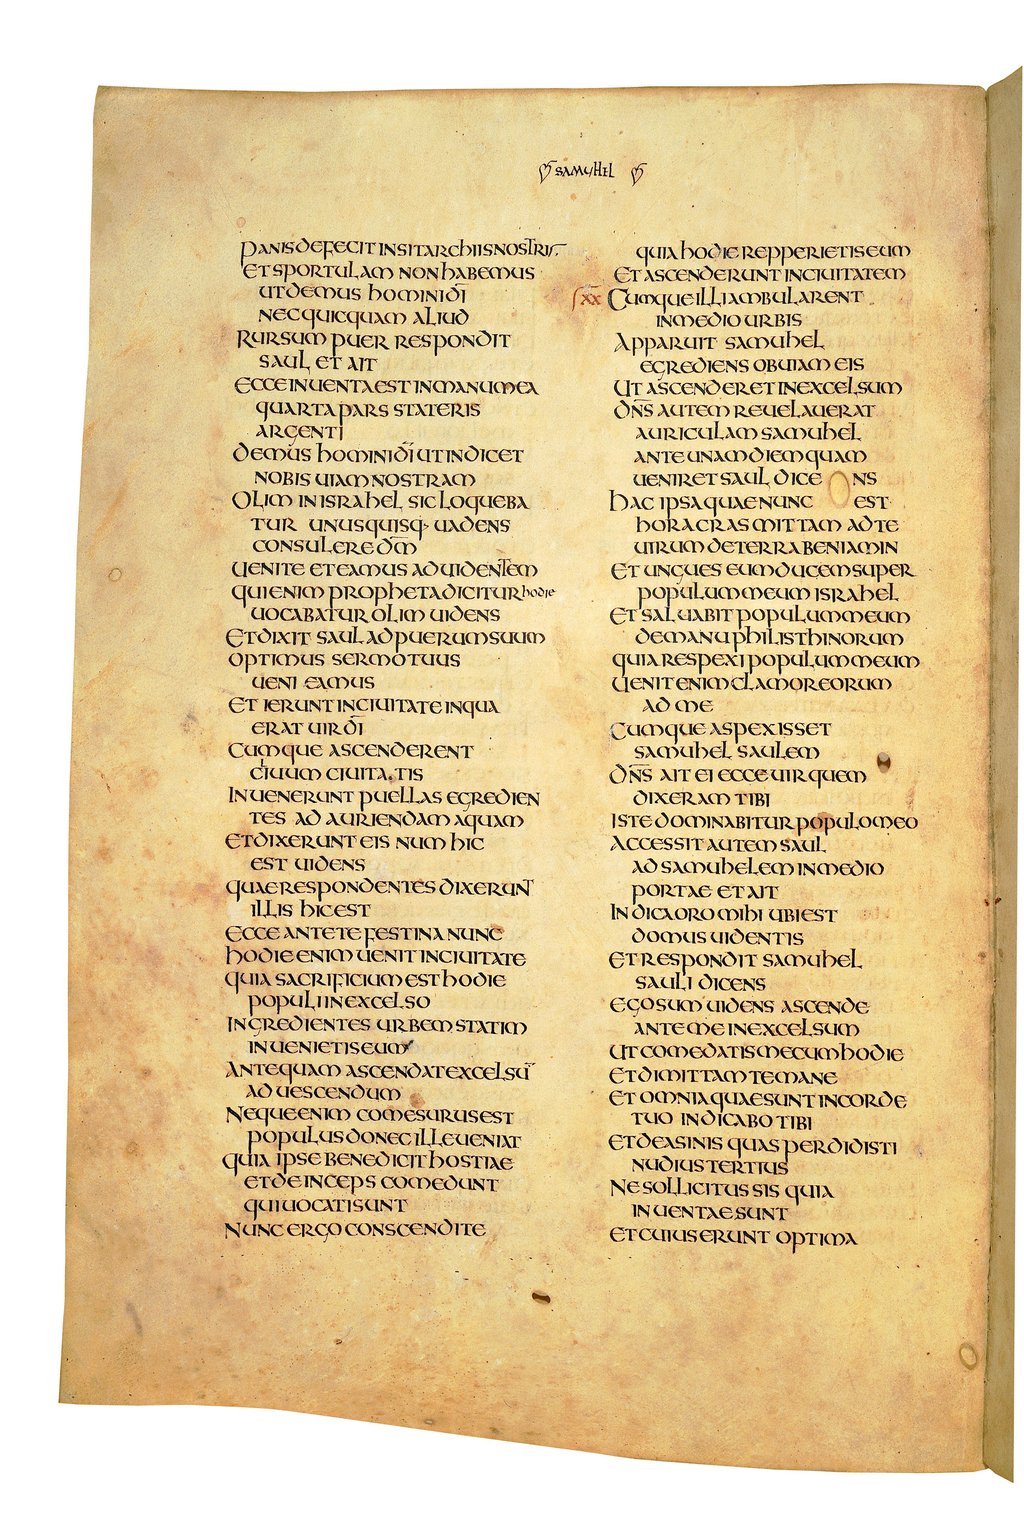 SAMUHEL
PANIS DEFECIT IN SITARCHIIS NOSTRIS
ET SPORTULAM NON HABEMUS
UT DEMUS HOMINI DI
NEC QUICQUAM ALIUD
RURSUM PUER RESPONDIT
SAUL ET AIT
ECCE INUENTA EST IN MANU MEA
QUARTA PARS STATERIS
ARGENTI
DEMUS HOMINI DI UT INDICET
NOBIS UIAM NOSTRAM
OLIM IN ISRAHEL SIC LOQUEBA
TUR UNUSQUISQ· UADENS
CONSULERE DM
UENITE ET EAMUS AD UIDENTEM
QUI ENIM PROPHETA DICITUR HODIE
UOCABATUR OLIM UIDENS
ET DIXIT SAUL AD PUERUM SUUM
OPTIMUS SERMO TUUS
UENI EAMUS
ET IERUNT IN CIUITATE IN QUA
ERAT UIR DI
CUMQUE ASCENDERENT
CLIUUM CIUITATIS
INUENERUNT PUELLAS EGREDIEN
TES AD AURIENDAM AQUAM
ET DIXERUNT EIS NUM HIC
EST UIDENS
QUAE RESPONDENTES DIXERUNT
ILLIS HIC EST
ECCE ANTE TE FESTINA NUNC
HODIE ENIM UENIT IN CIUITATE
QUIA SACRIFICIUM EST HODIE
POPULI IN EXCELSO
INGREDIENTES URBEM STATIM
INUENIETIS EUM
ANTEQUAM ASCENDAT EXCELSŪ
AD UESCENDUM
NEQUE ENIM COMESURUS EST
POPULUS DONEC ILLE UENIAT
QUIA IPSE BENEDICIT HOSTIAE
ET DEINCEPS COMEDUNT
QUI UOCATI SUNT
NUNC ERGO CONSCENDITE
QUIA HODIE REPPERIETIS EUM
ET ASCENDERUNT IN CIUITATEM
XX CUMQUE ILLI AMBULARENT
IN MEDIO URBIS
APPARUIT SAMUHEL
EGREDIENS OBUIAM EIS
UT ASCENDERET IN EXCELSUM
DNS AUTEM REUELAUERAT
AURICULAM SAMUHEL
ANTE UNAM DIEM QUAM
UENIRET SAUL DICE NS
HAC IPSA QUAE NUNC EST
HORA CRAS MITTAM AD TE
UIRUM DE TERRA BENIAMIN
ET UNGUES EUM DUCEM SUPER
POPULUM MEUM ISRAHEL
ET SALUABIT POPULUM MEUM
DE MANU PHILISTHINORUM
QUIA RESPEXI POPULUM MEUM
UENIT ENIM CLAMOR EORUM
AD ME
CUMQUE ASPEXISSET
SAMUHEL SAULEM
DNS AIT EI ECCE UIR QUEM
DIXERAM TIBI
ISTE DOMINABITUR POPULO MEO
ACCESSIT AUTEM SAUL
AD SAMUHELEM IN MEDIO
PORTAE ET AIT
INDICA ORO MIHI UBI EST
DOMUS UIDENTIS
ET RESPONDIT SAMUHEL
SAULI DICENS
EGO SUM UIDENS ASCENDE
ANTE ME IN EXCELSUM
UT COMEDATIS MECUM HODIE
ET DIMITTAM TE MANE
ET OMNIA QUAE SUNT IN CORDE
TUO INDICABO TIBI
ET DE ASINIS QUAS PERDIDISTI
NUDIUS TERTIUS
NE SOLLICITUS SIS QUIA
INUENTAE SUNT
ET CUIUS ERUNT OPTIMA